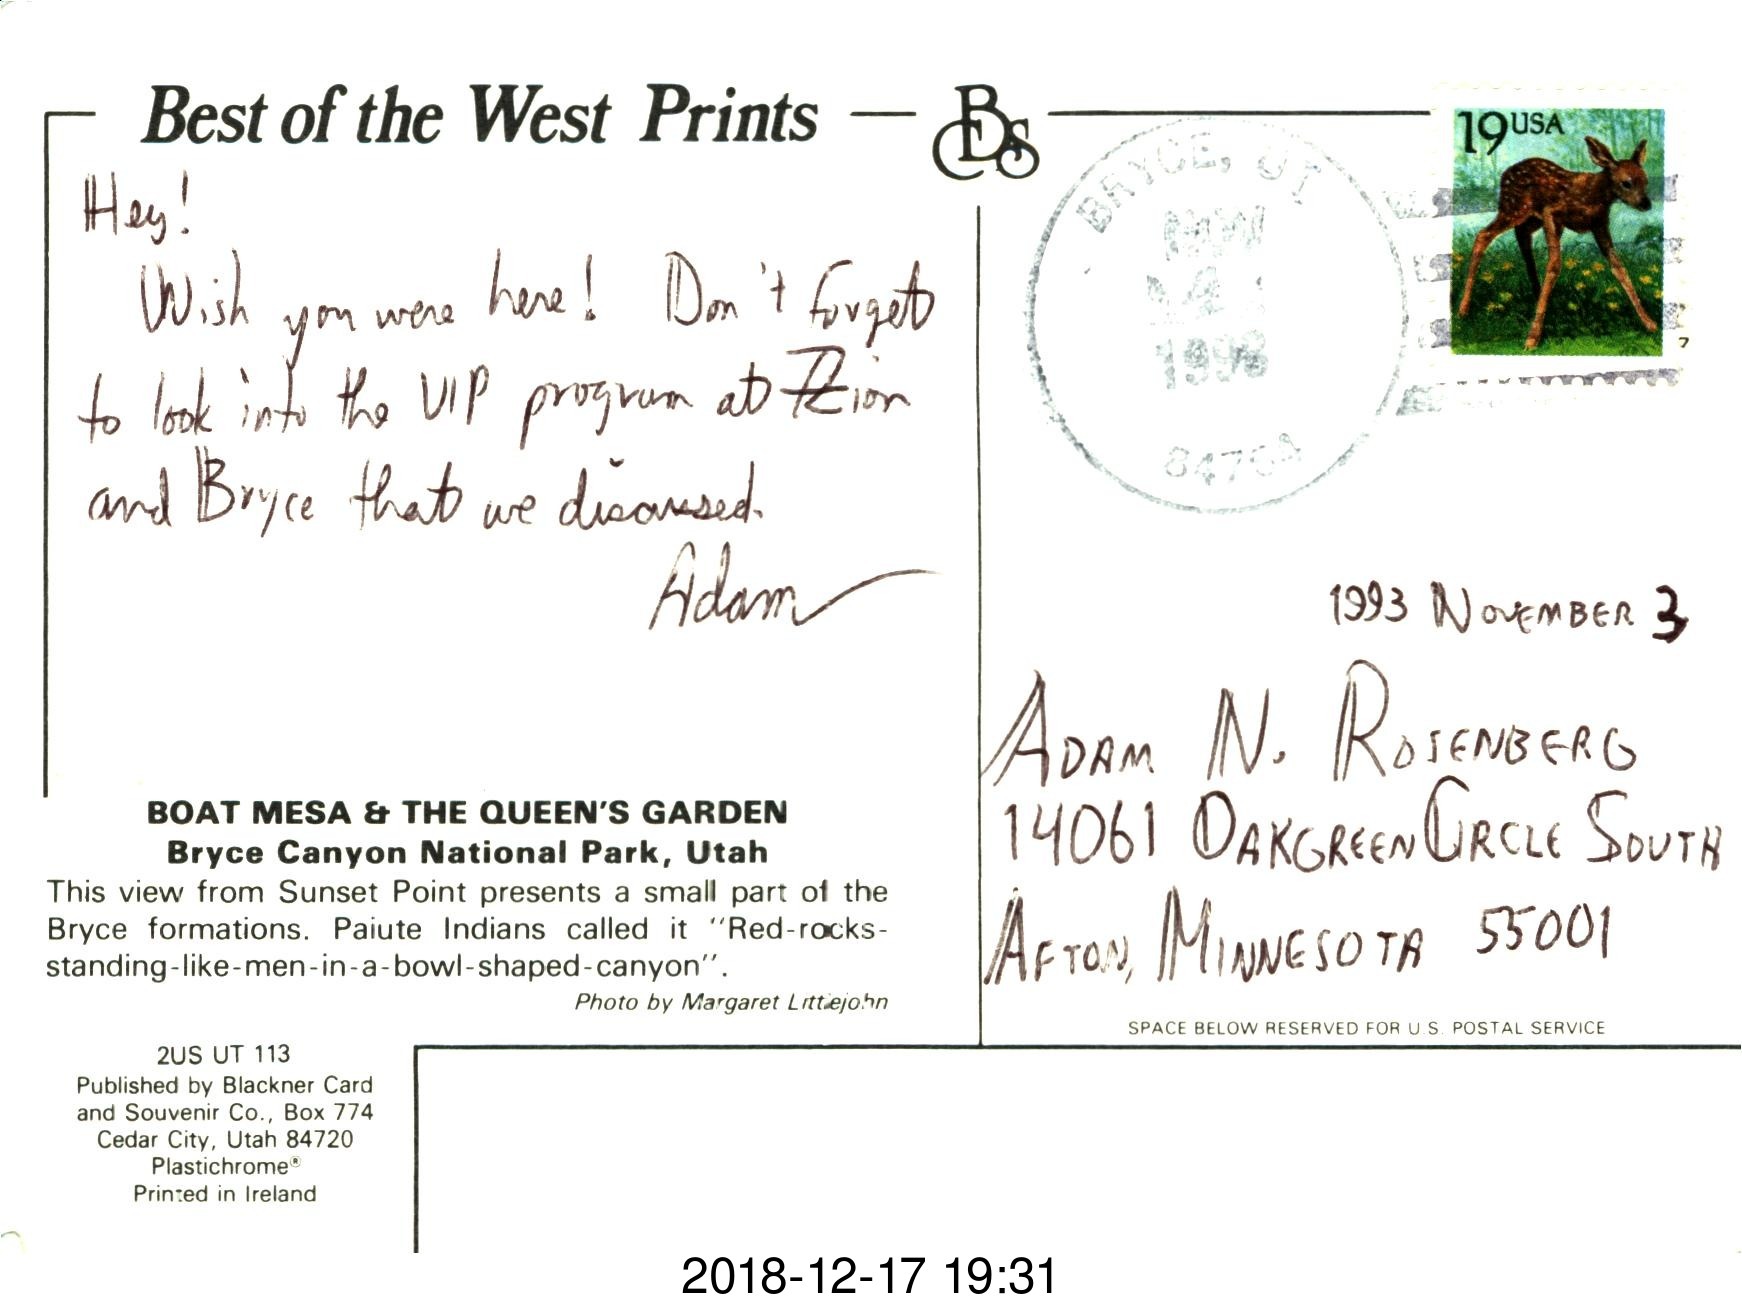 Best of the West Prints
Hey!
Wish you were here! Don't forget
to look into the VIP program at Zion
and Bryce that we discussed.
Adam
BOAT MESA & THE QUEEN'S GARDEN
Bryce Canyon National Park, Utah
This view from Sunset Point presents a small part of the
Bryce formations. Paiute Indians called it "Red-rocks-
standing-like-men-in-a-bowl-shaped-canyon".
Photo by Margaret Littlejohn
2US UT 113
Published by Blackner Card
and Souvenir Co., Box 774
Cedar City, Utah 84720
Plastichrome®
Printed in Ireland
BRYCE, UT
NOV
4
1993
19 USA
7
1993 NOVEMBER 3
ADAM N. ROSENBERG
14061 OAKGREEN CIRCLE SOUTH
AFTON, MINNESOTA 55001
SPACE BELOW RESERVED FOR U.S. POSTAL SERVICE
2018-12-17 19:31